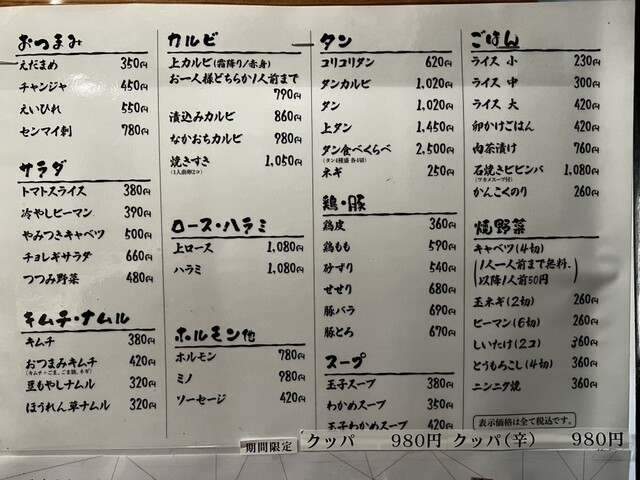 おつまみ
えだまめ 350円
チャンジャ 450円
えいひれ 550円
センマイ刺 780円
サラダ
トマトスライス 380円
冷やしピーマン 390円
やみつきキャベツ 500円
チョレギサラダ 660円
つつみ野菜 480円
キムチ・ナムル
キムチ 380円
おつまみキムチ 420円
(キムチ+ごま、ごま油、ネギ)
豆もやしナムル 320円
ほうれん草ナムル 320円
カルビ
上カルビ(霜降り/赤身)
お一人様どちらか1人前まで
790円
漬込みカルビ 860円
なかおちカルビ 980円
焼きすき 1,050円
(1人前卵2コ)
ロース・ハラミ
上ロース 1,080円
ハラミ 1,080円
ホルモン他
ホルモン 780円
ミノ 980円
ソーセージ 420円
タン
コリコリタン 620円
タンカルビ 1,020円
タン 1,020円
上タン 1,450円
タン食べくらべ 2,500円
(タン4種盛 各4切)
ネギ 250円
鶏・豚
鶏皮 360円
鶏もも 590円
砂ずり 540円
せせり 680円
豚バラ 690円
豚とろ 670円
スープ
玉子スープ 380円
わかめスープ 350円
玉子わかめスープ 420円
ごはん
ライス 小 230円
ライス 中 300円
ライス 大 420円
卵かけごはん 420円
肉茶漬け 760円
石焼きビビンバ 1,080円
(ワカメスープ付)
かんこくのり 260円
焼野菜
キャベツ(4切)
(1人一人前まで無料、
以降1人前50円)
玉ネギ(2切) 260円
ピーマン(6切) 260円
しいたけ(2コ) 360円
とうもろこし(4切) 360円
ニンニク焼 360円
表示価格は全て税込です。
期間限定 クッパ 980円 クッパ(辛) 980円